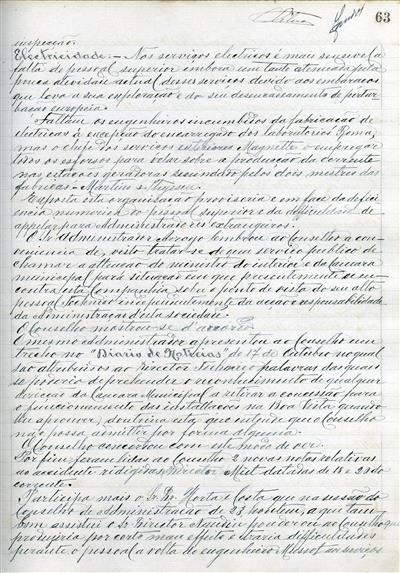 63
inspecção.
Electricidade: - Nos serviços electricos é mais sensivel a
falta de pessoal superior embora um tanto atenuada pela
pouca atividade actual desses serviços devido aos embaraços
que leva a sua exploração e do seu desencadamento de pertur-
bação europeia.
Faltam os engenheiros incumbidos da fabricação de
electricas á excepção do encarregado dos laboratorios Roma,
mas o chefe dos serviços exteriores Magnette, empregar
todos os esforsos para velar sobre a producção da corrente
nas estações geradoras secundado pelos dois mestres das
fabricas - Martins e
Exposta esta organisação provisoria e em face da defici
encia numerica do pessoal superior e da dificuldade de
apelar para administradores extrangeiros.
O Sr. Administrador Arroyo lembrou ao Conselho a con-
veniencia de, visto tratar-se de um serviço publico de
chamar a attenção do ministro do interior e da Camara
municipal para a situação em que presentemente se en-
contra esta Companhia sobre o ponto de vista do seu alto
pessoal technico independentemente da acção e responsabilidade
da administração d'esta sociedade.
O Conselho mostrou-se d'accordo.
O mesmo administrador apresentou ao Conselho um
trecho no "Diario de Noticias" de 17 de Outubro no qual
são attribuidos ao Director Suchane palavras das quaes
se poderia deprehender o reconhecimento de qualquer
direcção da Camara Municipal a retirar a concessão para
o funcionamento das installações na Boa Vista quando
lhe aprouver, doutrina esta que entende que o Conselho
não possa admittir por forma alguma.
O Conselho concordou com este modo de ver.
Por fim foram lidas ao Conselho 2 novas notas relativas
ao accidente redigidas Director Miet datadas de 18 e 23 do
corrente.
Participa mais o Sr. Dr. Horta e Costa que na sessão do
Conselho de Administração de 23, hontem, a que tam-
bem assistiu o Sr. Director Naudin ponderou ao Conselho que
produziria por certo mau effeito e traria difficuldades
perante o pessoal a volta do engenheiro Messot ao serviço